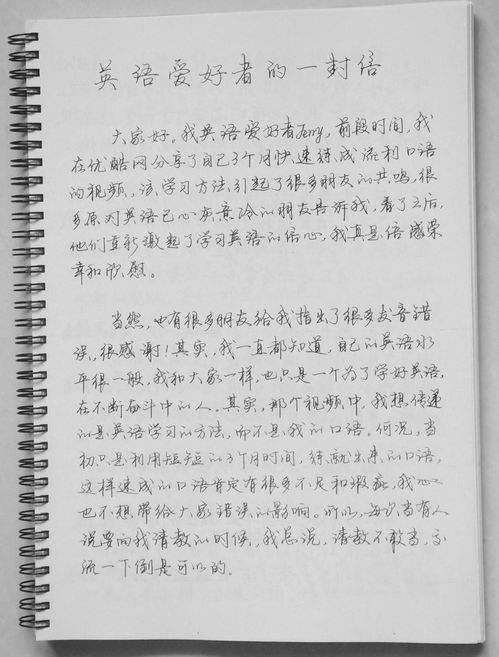 英语爱好者的一封信
大家好。我英语爱好者Jerry,前段时间,我
在优酷网分享了自己3个月快速练成流利口语
的视频,该学习方法,引起了很多朋友的共鸣,很
多原对英语已心灰意冷的朋友告诉我,看了之后,
他们重新激起了学习英语的信心,我真是倍感荣
幸和欣慰。
当然,也有很多朋友给我指出了很多发音错
误,很感谢!其实,我一直都知道,自己的英语水
平很一般,我和大家一样,也只是一个为了学好英语,
在不断奋斗中的人。其实,那个视频中,我想传递
的是英语学习的方法,而不是我的口语。何况,当
初只是利用短短的3个月时间,练就出来的口语,
这样速成的口语肯定有很多不足和瑕疵,我
也不想带给大家错误的影响。所以,每次当有人
说要向我请教的时候,我总说,请教不敢当,交
流一下倒是可以的。